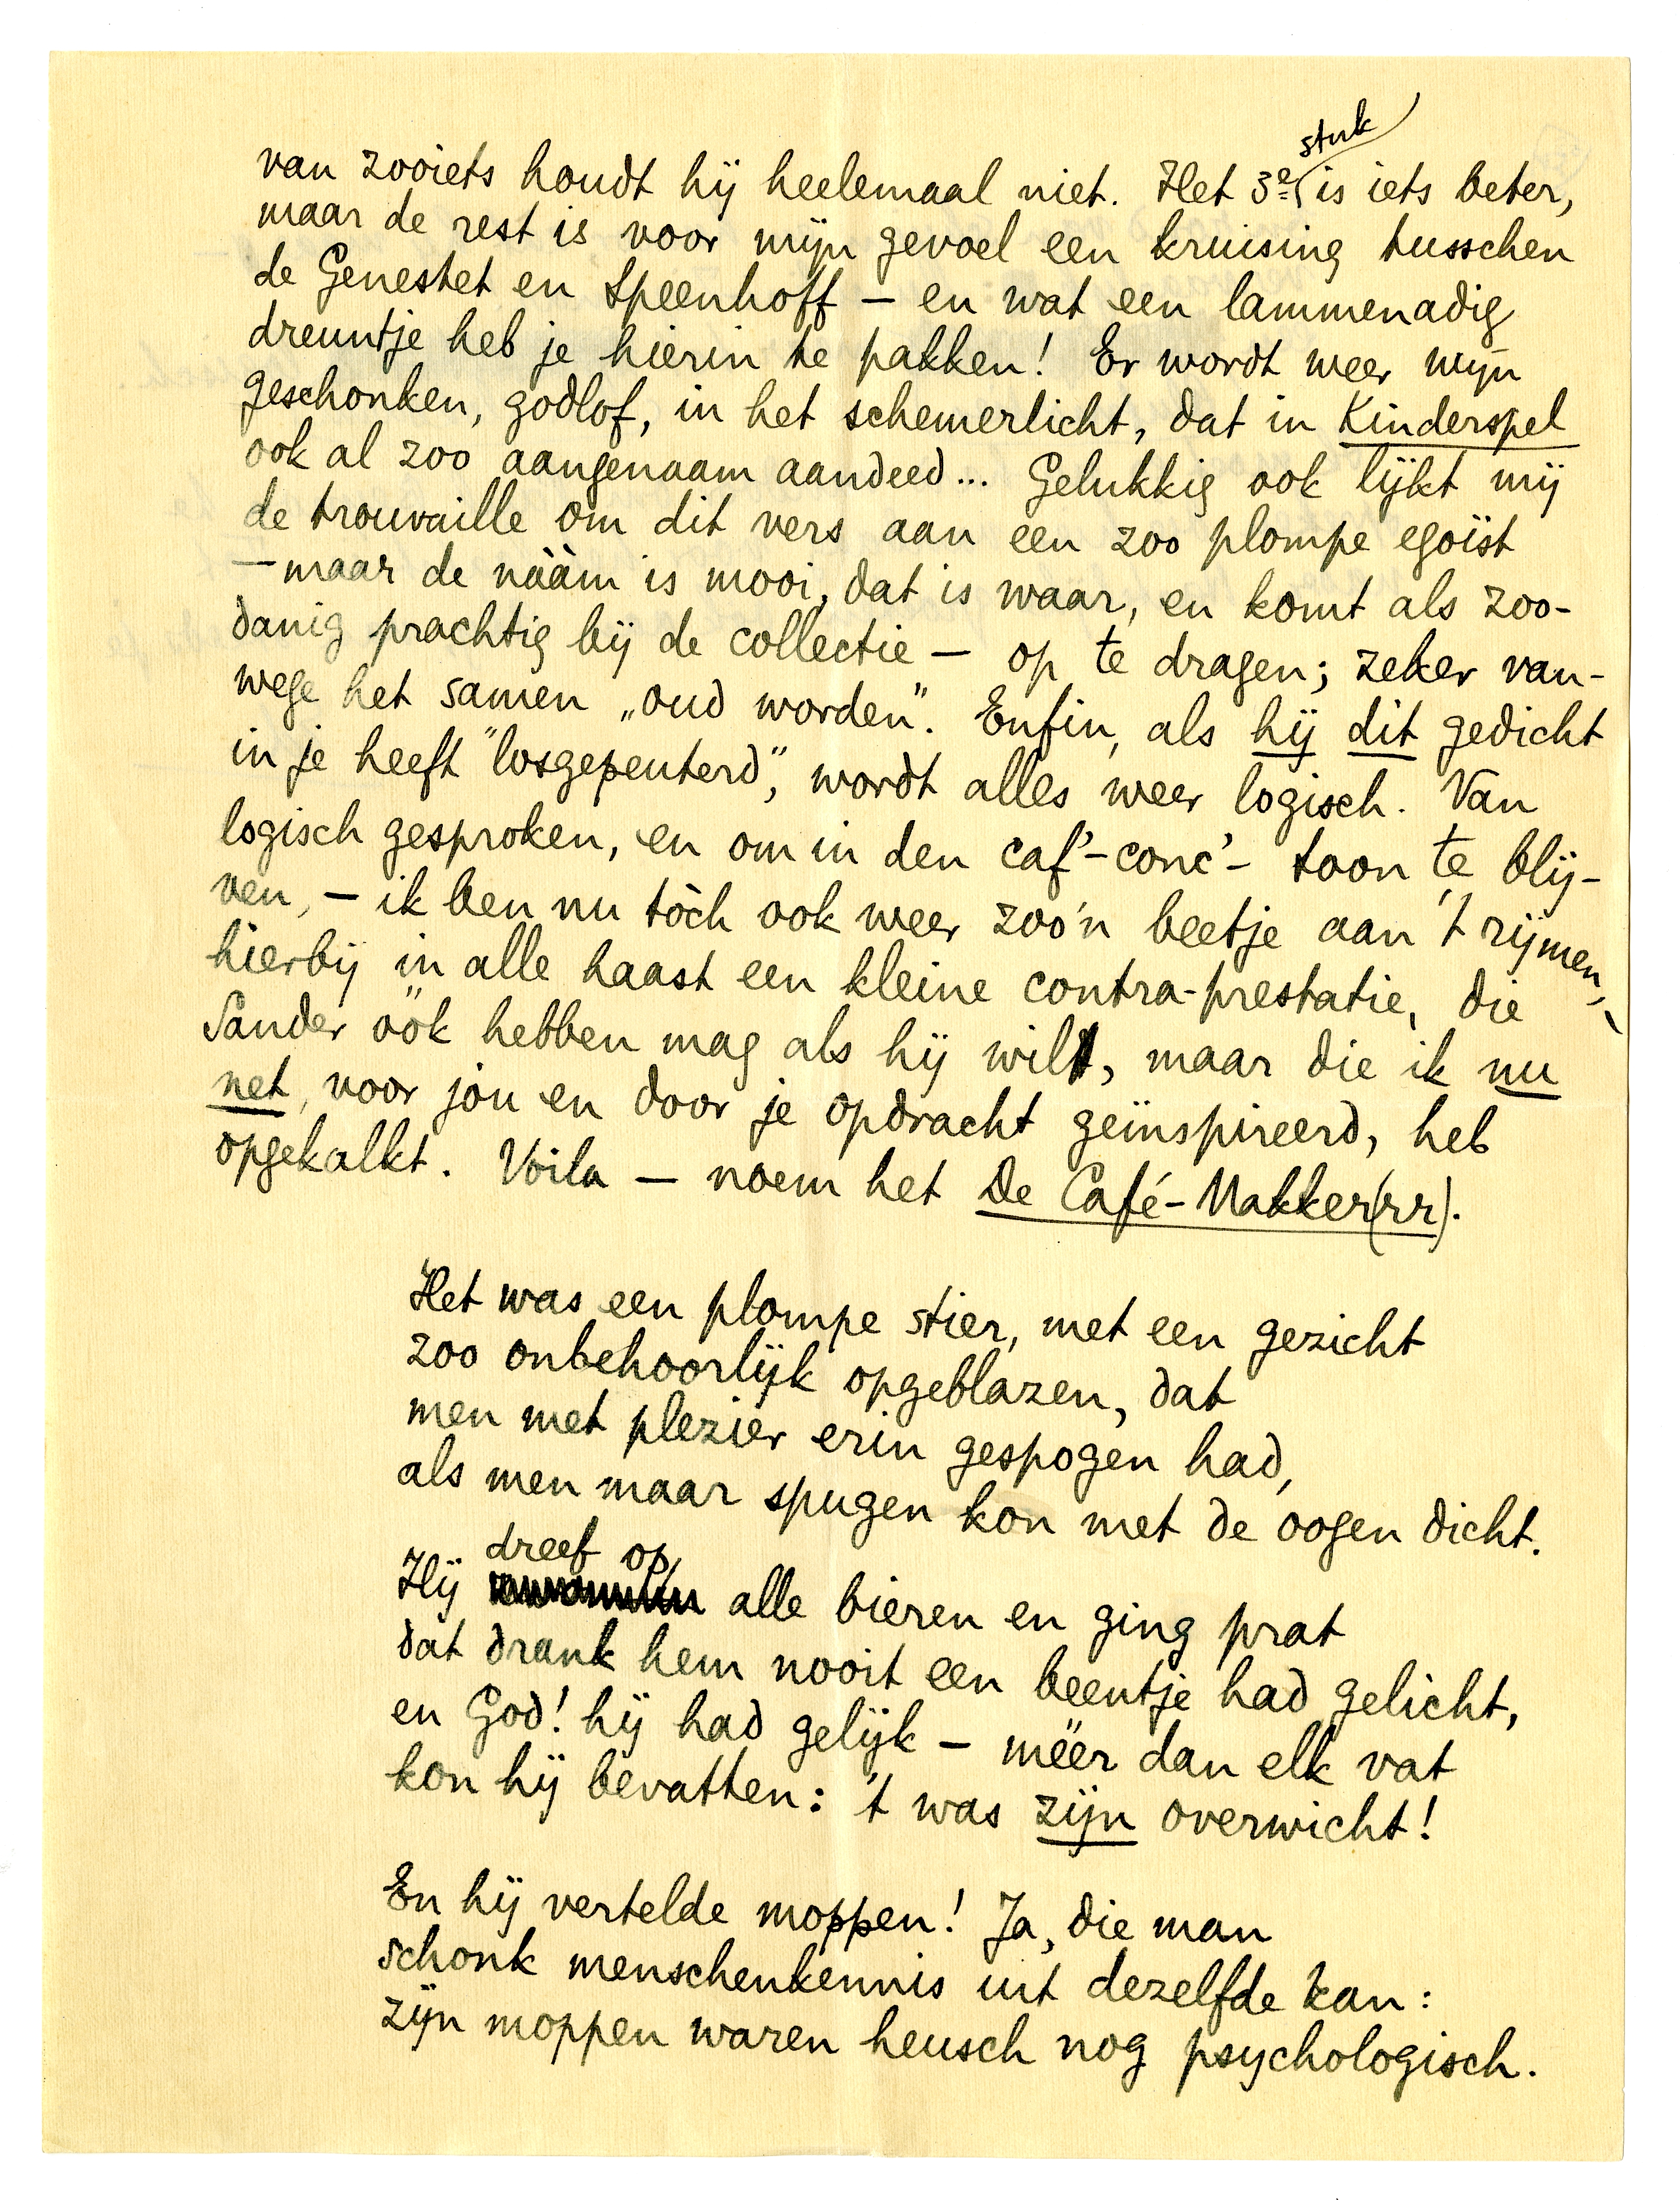 van zooiets houdt hij heelemaal niet. Het 3e stuk is iets beter,
maar de rest is voor mijn gevoel een kruising tusschen
de Genestet en Speenhoff – en wat een lammenadig
dreuntje heb je hierin te pakken! Er wordt weer wijn
geschonken, godlof, in het schemerlicht, dat in Kinderspel
ook al zoo aangenaam aandeed... Gelukkig ook lijkt mij
de trouvaille om dit vers aan een zoo plompe egoïst
– maar de nààm is mooi, dat is waar, en komt als zoo-
danig prachtig bij de collectie – op te dragen; zeker van-
wege het samen „oud worden”. Enfin, als hij dit gedicht
in je heeft "losgepeuterd", wordt alles weer logisch. Van
logisch gesproken, en om in den caf'-conc'- toon te blij-
ven, – ik ben nu tòch ook weer zoo'n beetje aan 't rijmen, –
hierbij in alle haast een kleine contra-prestatie, die
Sander óók hebben mag als hij wil, maar die ik nu
net, voor jou en door je opdracht geïnspireerd, heb
opgekalkt. Voila – noem het De Café-Makker(rr).
Het was een plompe stier, met een gezicht
zoo onbehoorlijk opgeblazen, dat
men met plezier erin gespogen had,
als men maar spugen kon met de oogen dicht.
Hij dreef op alle bieren en ging prat
dat drank hem nooit een beentje had gelicht,
en God! hij had gelijk – méér dan elk vat
kon hij bevatten: 't was zijn overwicht!
En hij vertelde moppen! Ja, die man
schonk menschenkennis uit dezelfde kan:
zijn moppen waren heusch nog psychologisch.